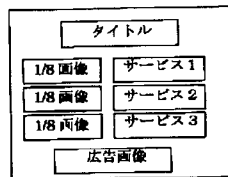 タイトル
1/8 画像 サービス1
1/8 画像 サービス2
1/8 画像 サービス3
広告画像